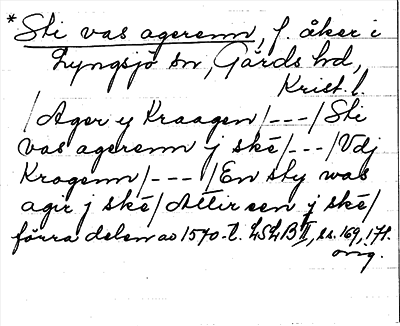 * Sti vas agerenn, f. åker i
Lyngsjö sn, Gärds hd,
Krist. l.
/Ager y Kraagen/---/Sti
vas agerenn j ské/---/Vdj
Kragenn/---/En sty was
agir j ské/Attir een j ské/
förra delen av 1570-t. LSLB II, ss. 169, 171.
orig.